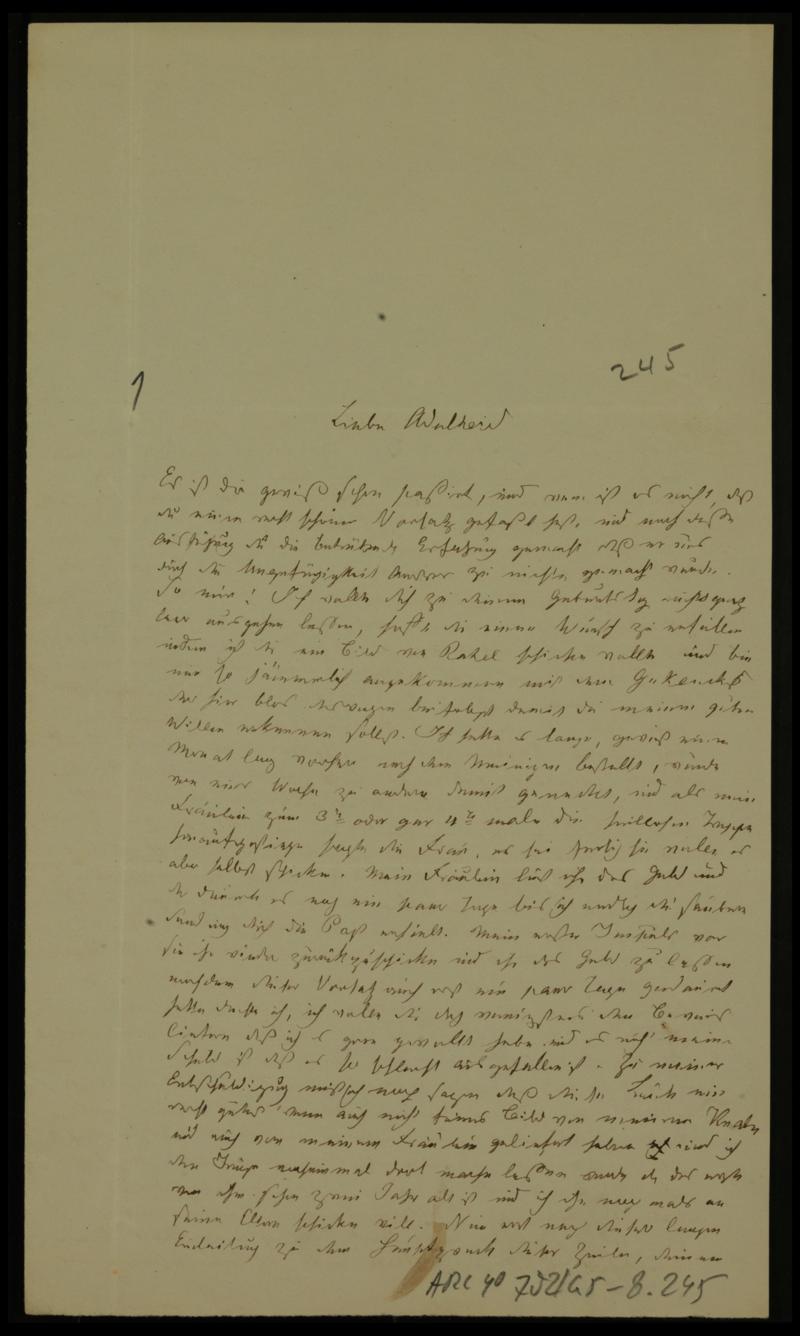 245
1
Liebe Adelheid
Es ist dir gewiß schon passirt, und wenn ist es nicht, daß
du einen recht schönen Vorsatz gefaßt hast, und nach dessen
Ausführung du die betrübende Erfahrung gemacht daß er uns
durch die Ungefügigkeit Anderer zu nichte gemacht wurde.
So mir! Ich wollte dich zu deinem Geburtstag nicht ganz
leer ausgehen lassen, hoffte dir einen Wunsch zu erfüllen
indem ich dir ein Bild von Rahel schicken wollte und bin
nun so jämmerlich angekommen mit dem
der hier blos deswegen beifolgt damit du meinen guten
Willen erkennen sollst. Ich hatte es lange, gewiß einen
Monat lang vorher nach dem Meinigen bestellt, wurde
von einer Woche zur andern damit geneckt, und als mein
Fräulein zum 3 oder gar 4 male die Treppe
hinaufgestiegen sagte die Frau, es sei fertig sie wolle es
aber selbst schicken. Mein Fräulein ließ ihr das Geld und
da dauerte es noch ein paar Tage bis ich endlich die saubere
Sendung durch die Post erhielt. Mein erster Impuls war
sie ihr wieder zurückzuschicken und ihr das Geld zu lassen
nachdem dieser Vorsatz auch erst ein paar Tage gedauert
hatte dachte ich, ich wolle dir doch wenigstens den Beweis
liefern daß ich es gern gewollt habe und es nicht meine
Schuld ist daß es so schlecht ausgefallen ist. Zu meiner
Entschuldigung muß ich noch sagen daß diese Leute ein
recht gutes wenn auch nicht feines Bild von meinem Knaben
und auch von meinem Fräulein geliefert haben und ich
den Jungen nocheinmal dort machen lassen werde da das erste
von ihm schon zwei Jahr alt ist und ich ihn noch mals an
seine Eltern schicken will. Nun erst nach dieser langen
Einleitung zu dem Hauptzweck dieser Zeilen, deinen
ARC 4° 792/G5-8.245